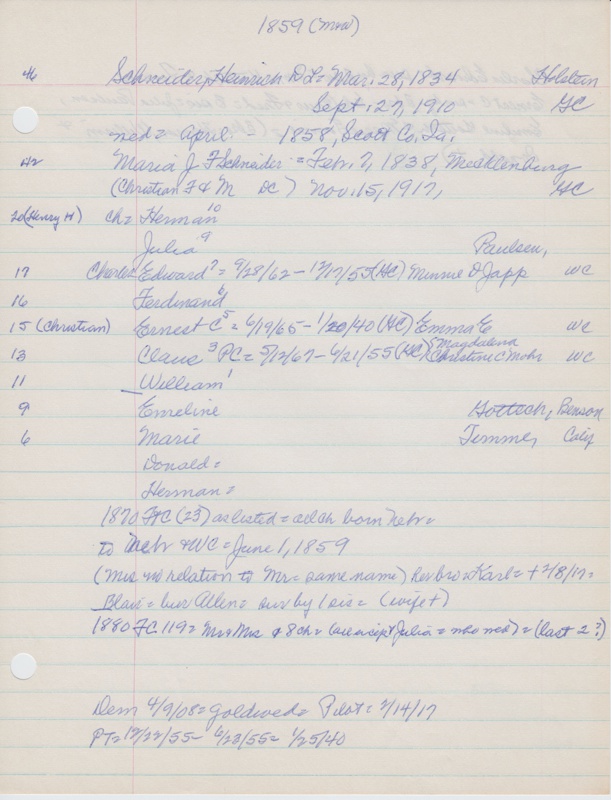 1859 (M&W)
46 Schneider, Heinrich D L = Mar. 28, 1834 Holstein
Sept. 27, 1910 GC
med = April 1858, Scott Co. Ia,
42 Maria J F Schneider = Feb. 7, 1838, Mecklenburg
(Christian F & M DC) Nov. 15, 1917, GC
20 (Henry H) ch = Herman 10
Julia 9 Paulsen,
17 Charles Edward 7 = 9/28/62 - 12/17/55 (HC) Minnie D Japp WC
16 Ferdinand 6
15 (Christian) Ernest C 5 = 6/19/65 - 1/20/40 (HC) Emma E WC
13 Claus 3 PC = 5/12/67 - 6/21/55 (HC) Magdalena Christine C Mohr WC
11 William 1
9 Emeline Gottsch, Benson
6 Marie Timme, Calif
Donald =
Herman =
1870 FC (23) as listed = all ch born Nebr =
to Nebr & WC = June 1, 1859
(Mrs no relation to Mr = same name) her bro = Karl = + 2/8/17 =
Blair = bur Allen = sur by 1 sis = (wife +)
1880 FC 119 = Mr & Mrs & 8 ch = (all except Julia = who med) = (last 2 ?)
Dem 4/9/08 = gold wed = Pilot = 2/14/17
PT = 12/22/55 - 6/23/55 = 1/25/40